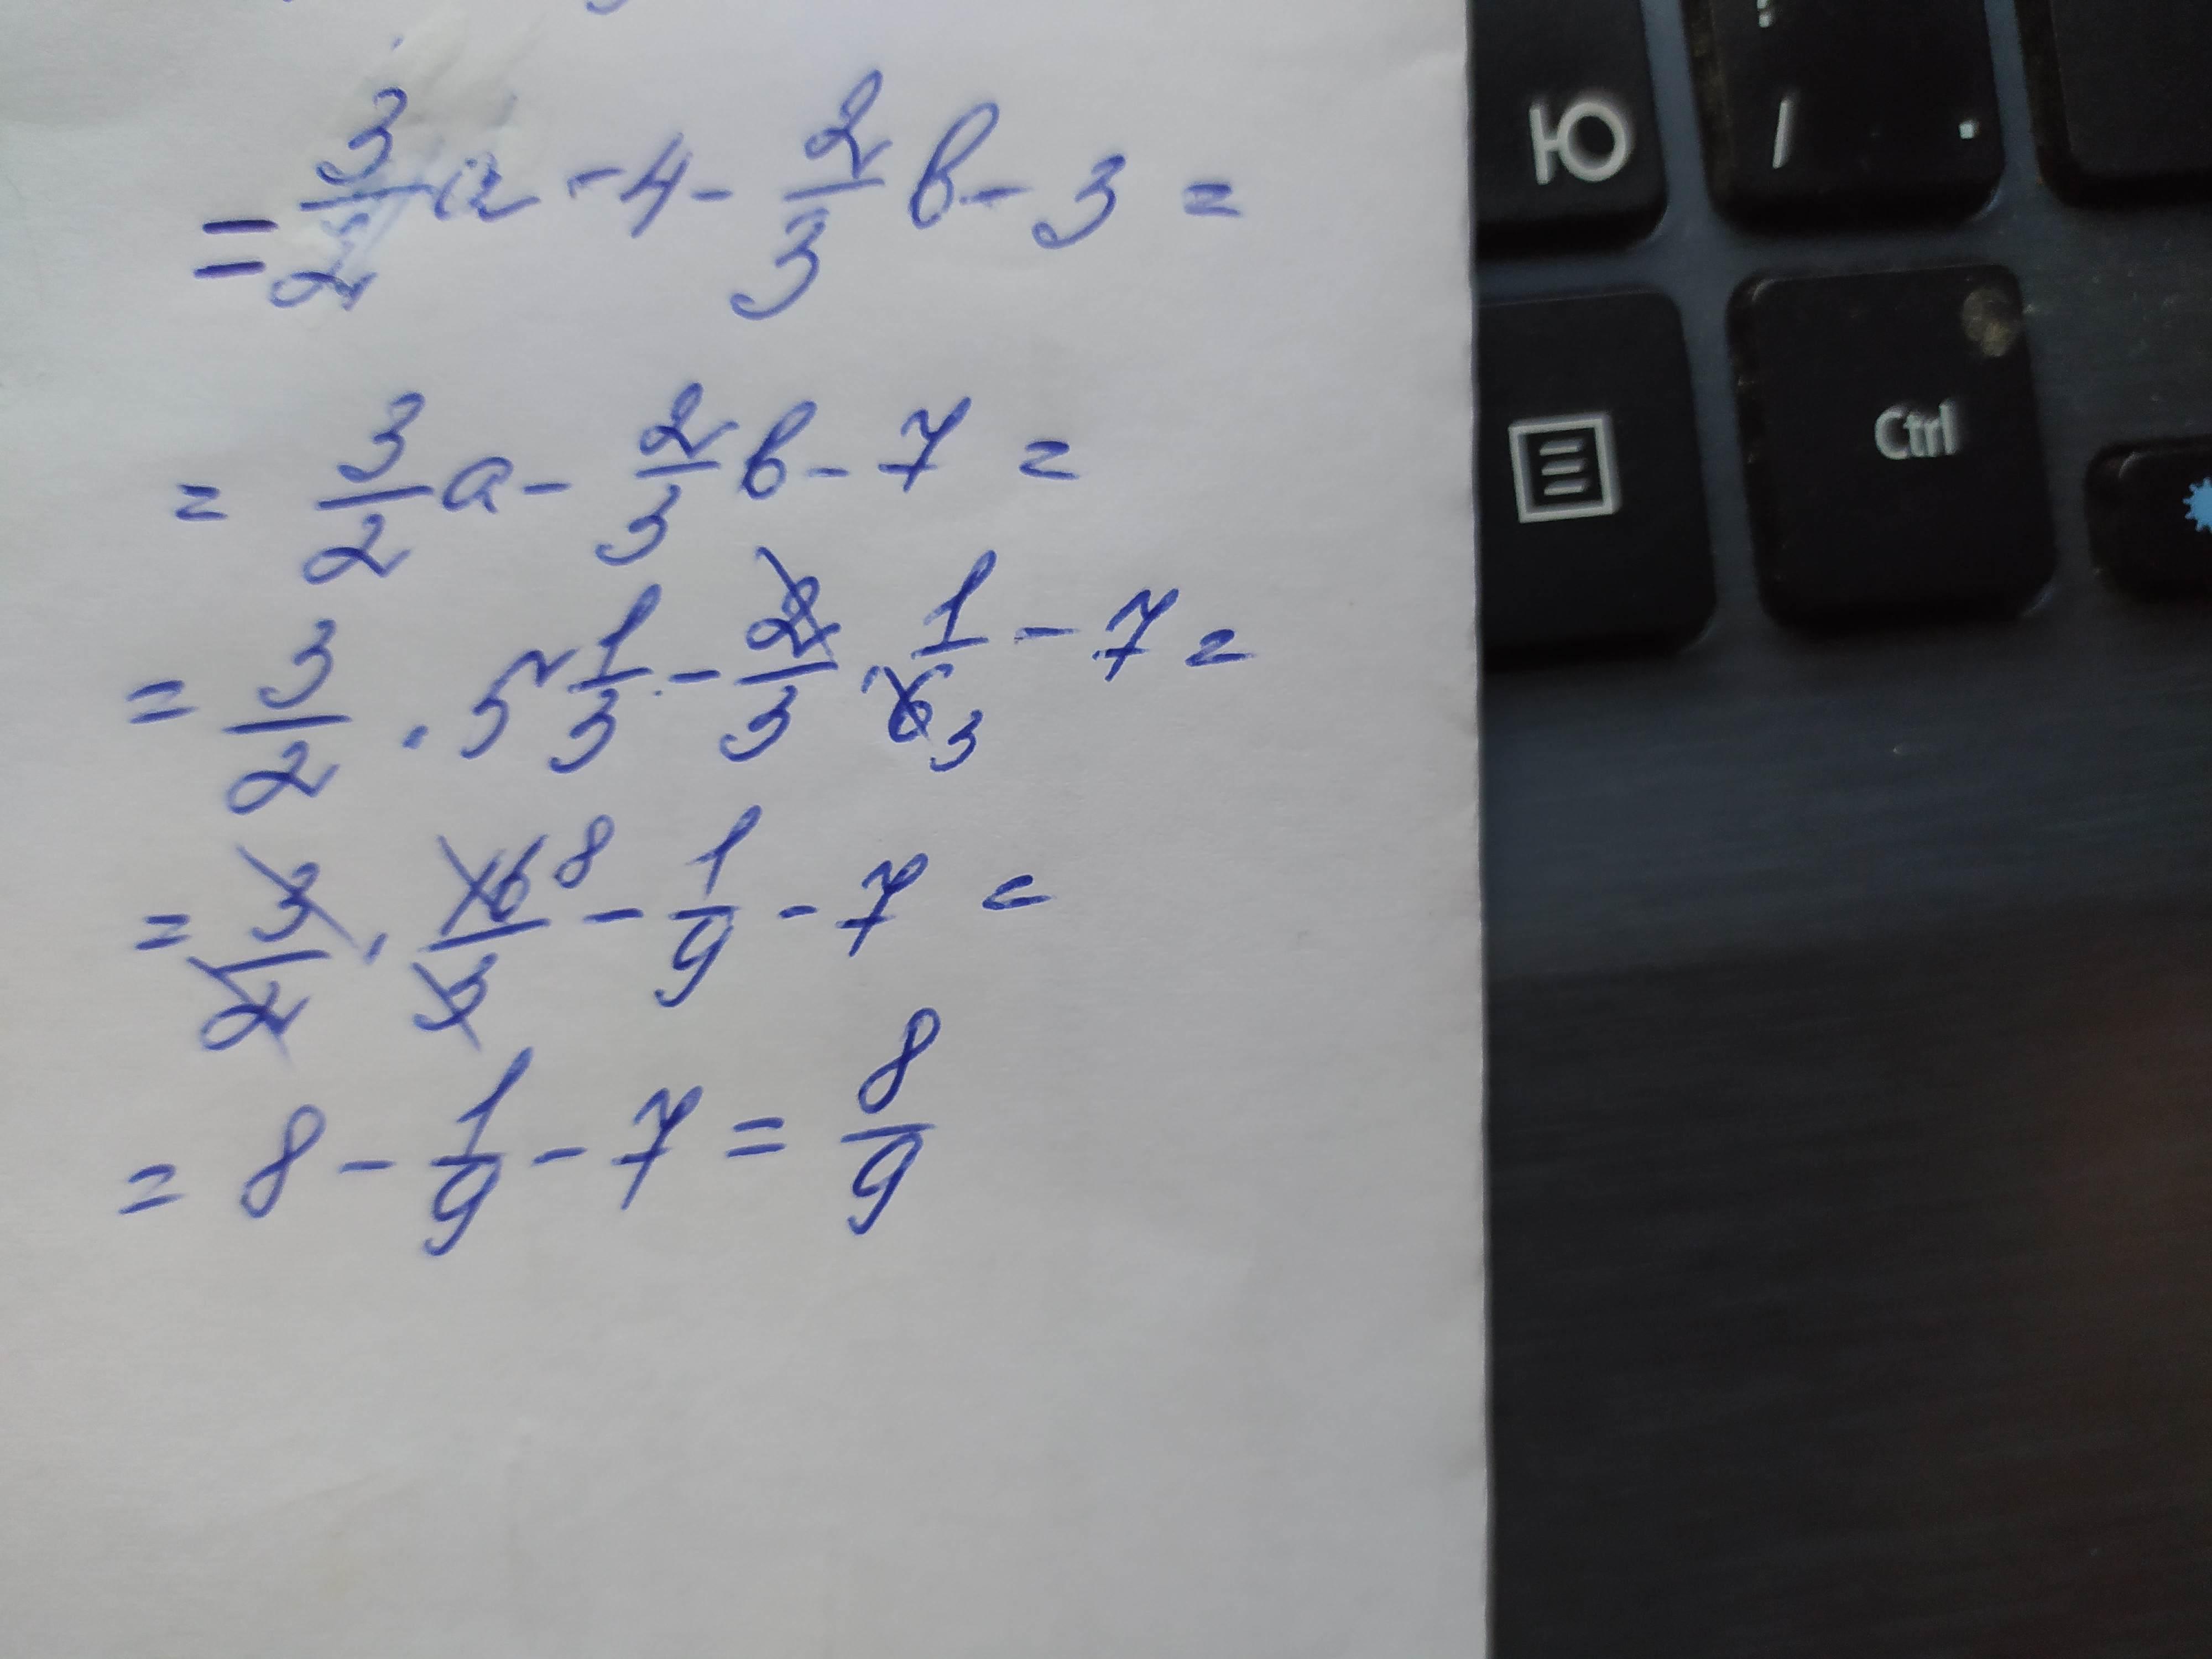 = 3/2 a - 4 - 2/3 b - 3 =
= 3/2 a - 2/3 b - 7 =
= 3/2 · 5 1/3 - 2/3 · 1/6 3 - 7 =
= 3/2 · 16 8/3 - 1/9 - 7 =
= 8 - 1/9 - 7 = 8/9
Ю
/ .
Ctrl